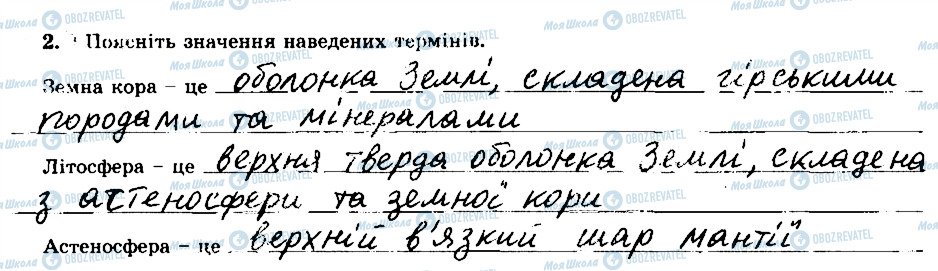 2. Поясніть значення наведених термінів.
Земна кора – це оболонка Землі, складена гірськими
породами та мінералами
Літосфера – це верхня тверда оболонка Землі, складена
з астеносфери та земної кори
Астеносфера – це верхній в'язкий шар мантії